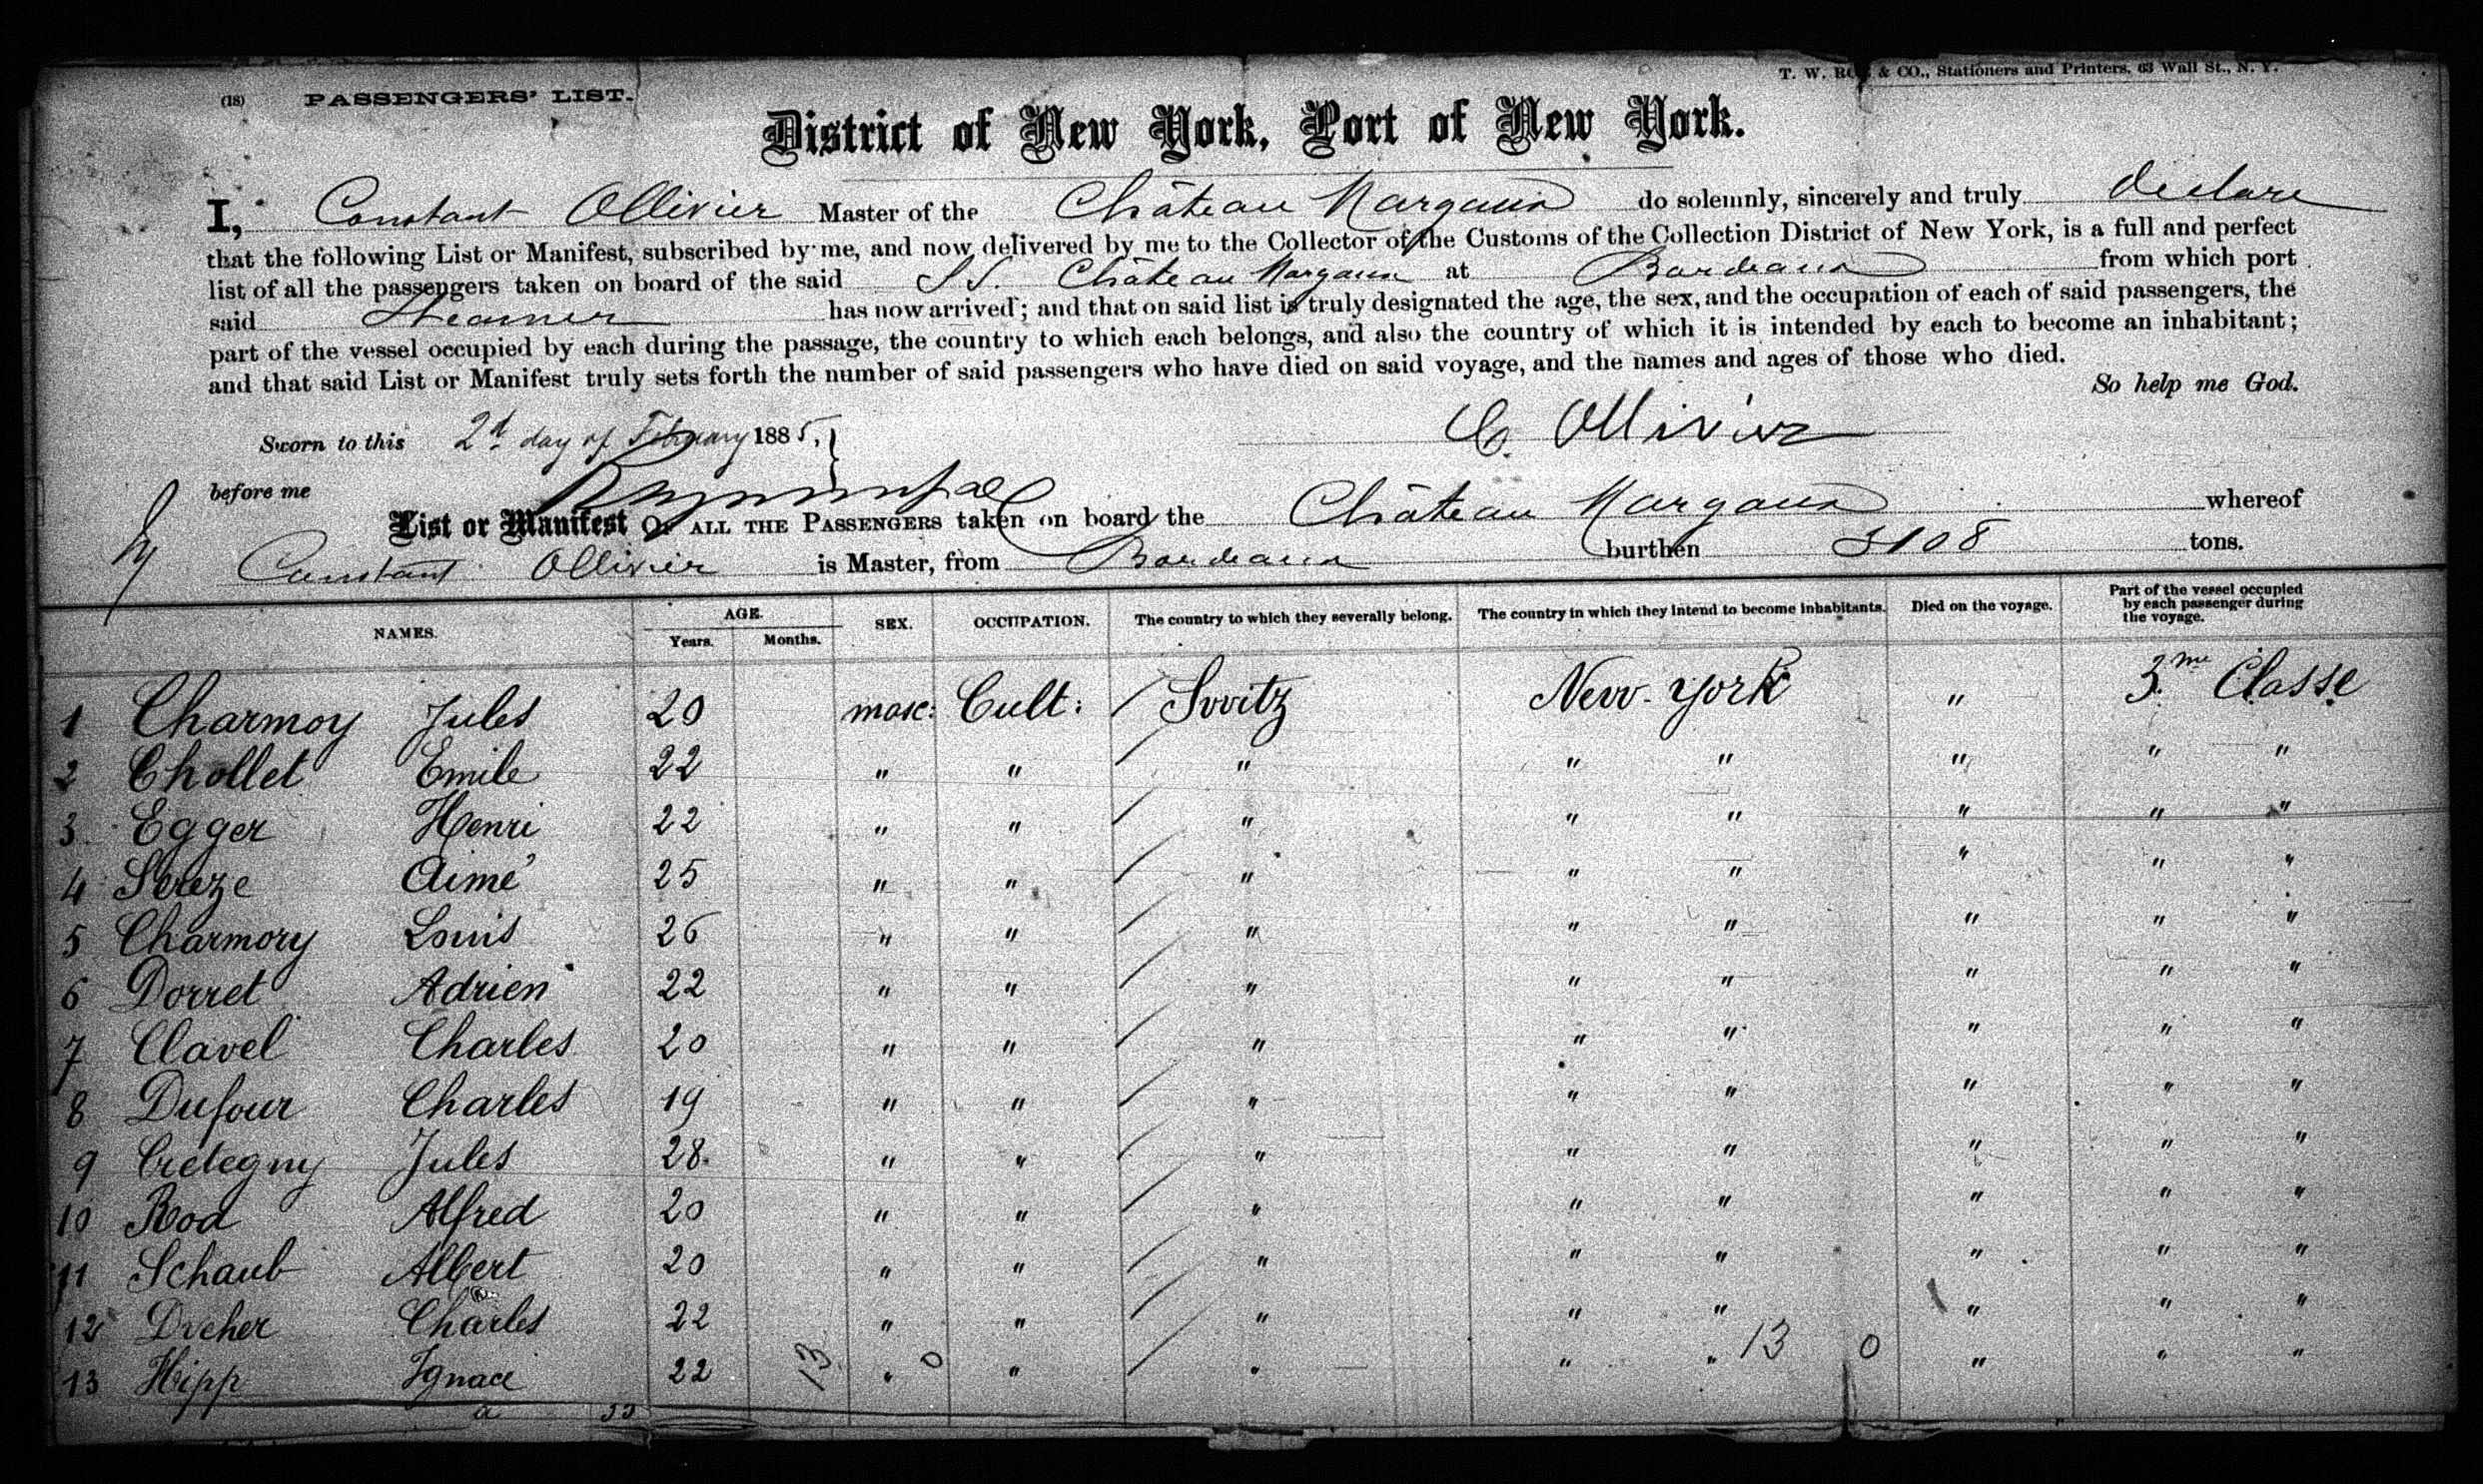 T. W. & CO., Stationers and Printers, 63 Wall St., N. Y.
(18) PASSENGERS' LIST.
District of New York, Port of New York.
I, Constant Ollivier Master of the Château Margaux do solemnly, sincerely and truly declare
that the following List or Manifest, subscribed by me, and now delivered by me to the Collector of the Customs of the Collection District of New York, is a full and perfect
list of all the passengers taken on board of the said SS. Château Margaux at Bordeaux from which port
said Steamer has now arrived; and that on said list is truly designated the age, the sex, and the occupation of each of said passengers, the
part of the vessel occupied by each during the passage, the country to which each belongs, and also the country of which it is intended by each to become an inhabitant;
and that said List or Manifest truly sets forth the number of said passengers who have died on said voyage, and the names and ages of those who died.
So help me God.
Sworn to this 2d day of February 1885, C. Ollivier
before me
List or Manifest OF ALL THE PASSENGERS taken on board the Château Margaux whereof
Constant Ollivier is Master, from Bordeaux burthen 3108 tons.
NAMES. AGE. Years. Months. SEX. OCCUPATION. The country to which they severally belong. The country in which they intend to become inhabitants. Died on the voyage. Part of the vessel occupied by each passenger during the voyage.
1 Charmoy Jules 20 masc: Cult: / Svvitz Nevv-York " 3me Classe
2 Chollet Emile 22 " " / " " " " " "
3 Egger Henri 22 " " / " " " " " "
4 Sereze Aimé 25 " " / " " " " " "
5 Charmory Louis 26 " " / " " " " " "
6 Dorret Adrien 22 " " / " " " " " "
7 Clavel Charles 20 " " / " " " " " "
8 Dufour Charles 19 " " / " " " " " "
9 Cretegny Jules 28. " " / " " " " " "
10 Rod Alfred 20 " " / " " " " " "
11 Schaub Albert 20 " " / " " " " " "
12 Dreher Charles 22 " " / " " " " " "
13 Hipp Ignace 22 13 " 0 " / " " " 13 0 " " "